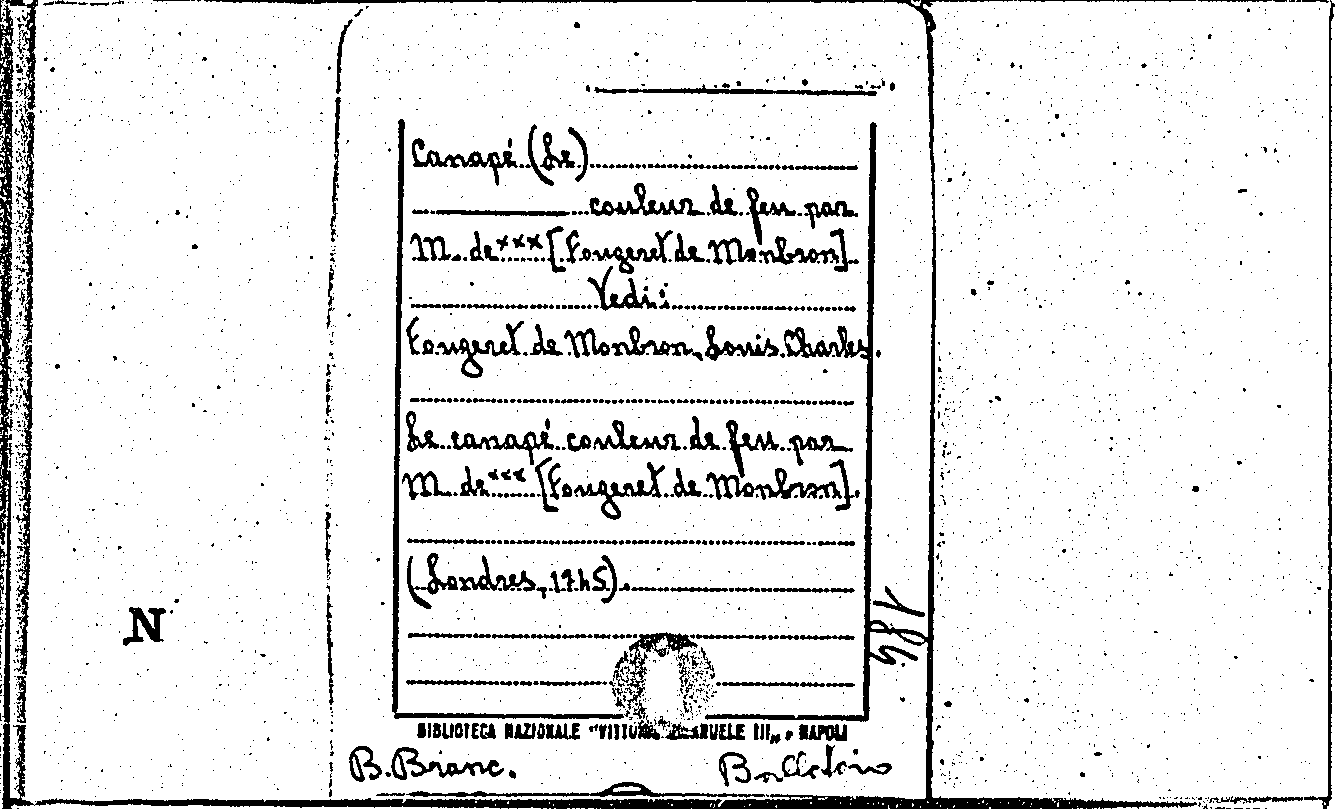 Canapé (Le)
couleur de feu par
M. de *** [Fougeret de Monbron].
Vedi:
Fougeret de Monbron, Louis Charles.
Le canapé couleur de feu par
M. de *** [Fougeret de Monbron].
(Londres, 1745).
184
N
BIBLIOTECA NAZIONALE "VITTORIO EMANUELE III„ - NAPOLI
B. Branc.